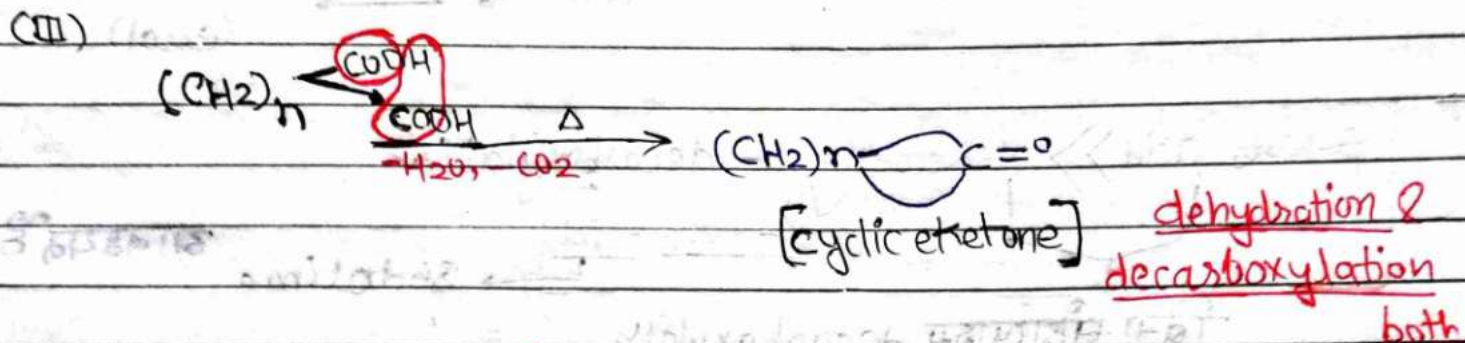 (III)
(CH2)n COOH
COOH Δ
-H2O, -CO2
(CH2)n C=O
[cyclic eketone]
dehydration &
decarboxylation
both